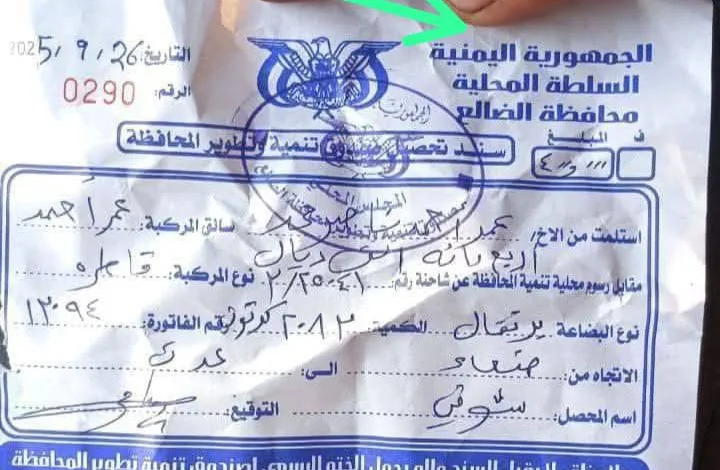 الجمهورية اليمنية
السلطة المحلية
محافظة الضالع
التاريخ: 2025/9/26
الرقم: 0290
ف المبلغ
سند تحصيل صندوق تنمية وتطوير المحافظة
استلمت من الاخ/ عمر احمد سائق المركبة: عمر أحمد
اربعمائة الف ريال
مقابل رسوم محلية تنمية المحافظة عن شاحنة رقم: ٢/٢٥٠٤١ نوع المركبة: قاطره
نوع البضاعة برتقال الكمية: ٢٠٨٣ كرتون رقم الفاتورة: ١٢٠٩٤
الاتجاه من: صنعاء الى: عدن
اسم المحصل: شوقي التوقيع: